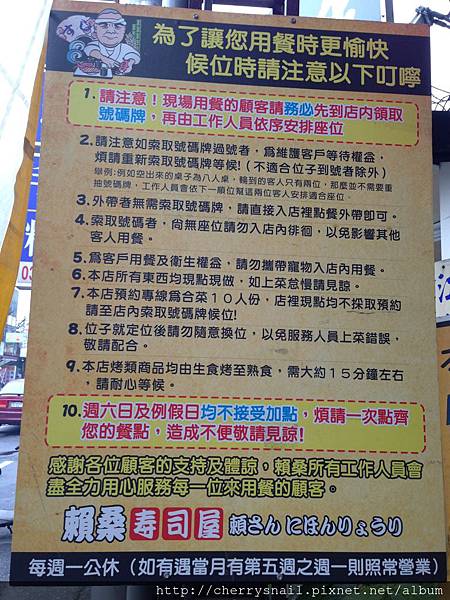 為了讓您用餐時更愉快
候位時請注意以下叮嚀
1. 請注意！現場用餐的顧客請務必先到店內領取
號碼牌，再由工作人員依序安排座位
2. 請注意如索取號碼牌過號者，為維護客戶等待權益，
煩請重新索取號碼牌等候!（不適合位子到號者除外）
舉例:例如空出來的桌子為八人桌，輪到的客人只有兩位，那麼並不需要重
抽號碼牌，工作人員會依下一順位幫這兩位客人安排適合座位
3. 外帶者無需索取號碼牌，請直接入店裡點餐外帶即可。
4. 索取號碼者，尚無座位請勿入店內徘徊，以免影響其他
客人用餐。
5. 為客戶用餐及衛生權益，請勿攜帶寵物入店內用餐。
6. 本店所有東西均現點現做，如上菜怠慢請見諒。
7. 本店預約專線為合菜１０人份，店裡現點均不採取預約
請至店內索取號碼牌候位!
8. 位子就定位後請勿隨意換位，以免服務人員上菜錯誤，
敬請配合。
9. 本店烤類商品均由生食烤至熟食，需大約１５分鐘左右
，請耐心等候。
10. 週六日及例假日均不接受加點，煩請一次點齊
您的餐點，造成不便敬請見諒!
感謝各位顧客的支持及體諒，賴桑所有工作人員會
盡全力用心服務每一位來用餐的顧客。
賴桑壽司屋 賴さん にほんりょうり
每週一公休（如有遇當月有第五週之週一則照常營業）
http://cherrysnail.pixnet.net/album